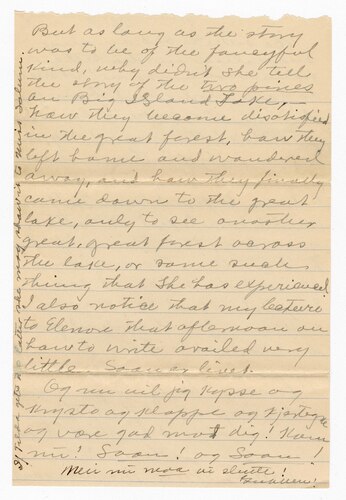 But as long as the story
was to be of the fancyful
kind, why didn't she tell
the story of the two pines
on Big Island Lake,—
how they became dissatisfied
in the great forest, how they
left home and wandered
away, and how they finally
came down to the great
lake, only to see another
great, great forest across
the lake, or some such
thing that she has experienced
I also notice that my lecture
to Elenore that afternoon on
how to write availed very
little. Saan er livet.
Og nu vil jeg kysse og
krysta og klappe og
og være god mot dig! Kom
nu! Saan! og Saan!
Men nu maa vi slutte!